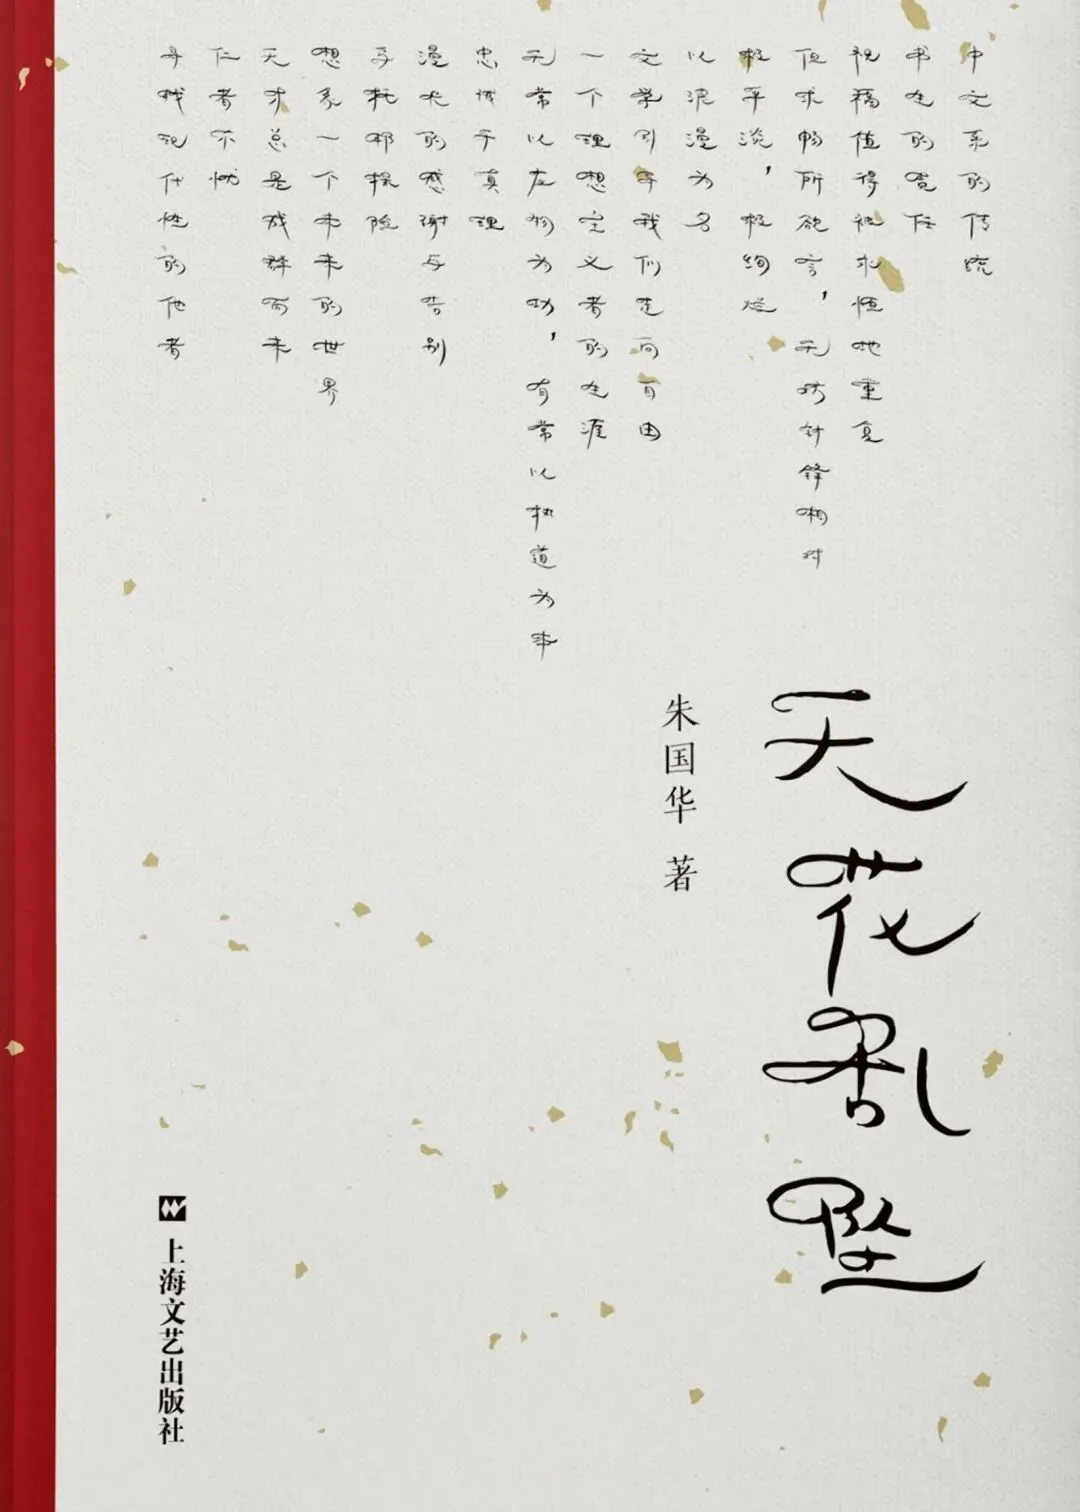 中文系的传统
书生的责任
祝福值得被永恒地重复
但求畅所欲言，无妨针锋相对
极平淡，极绚烂
以浪漫为名
文学引导我们走向自由
一个理想主义者的生涯
无常以应物为功，有常以执道为本
忠诚于真理
漫长的感谢与告别
寻托邦探险
想象一个未来的世界
天才总是成群而来
仁者不忧
寻找现代性的他者
天花乱坠
朱国华 著
上海文艺出版社